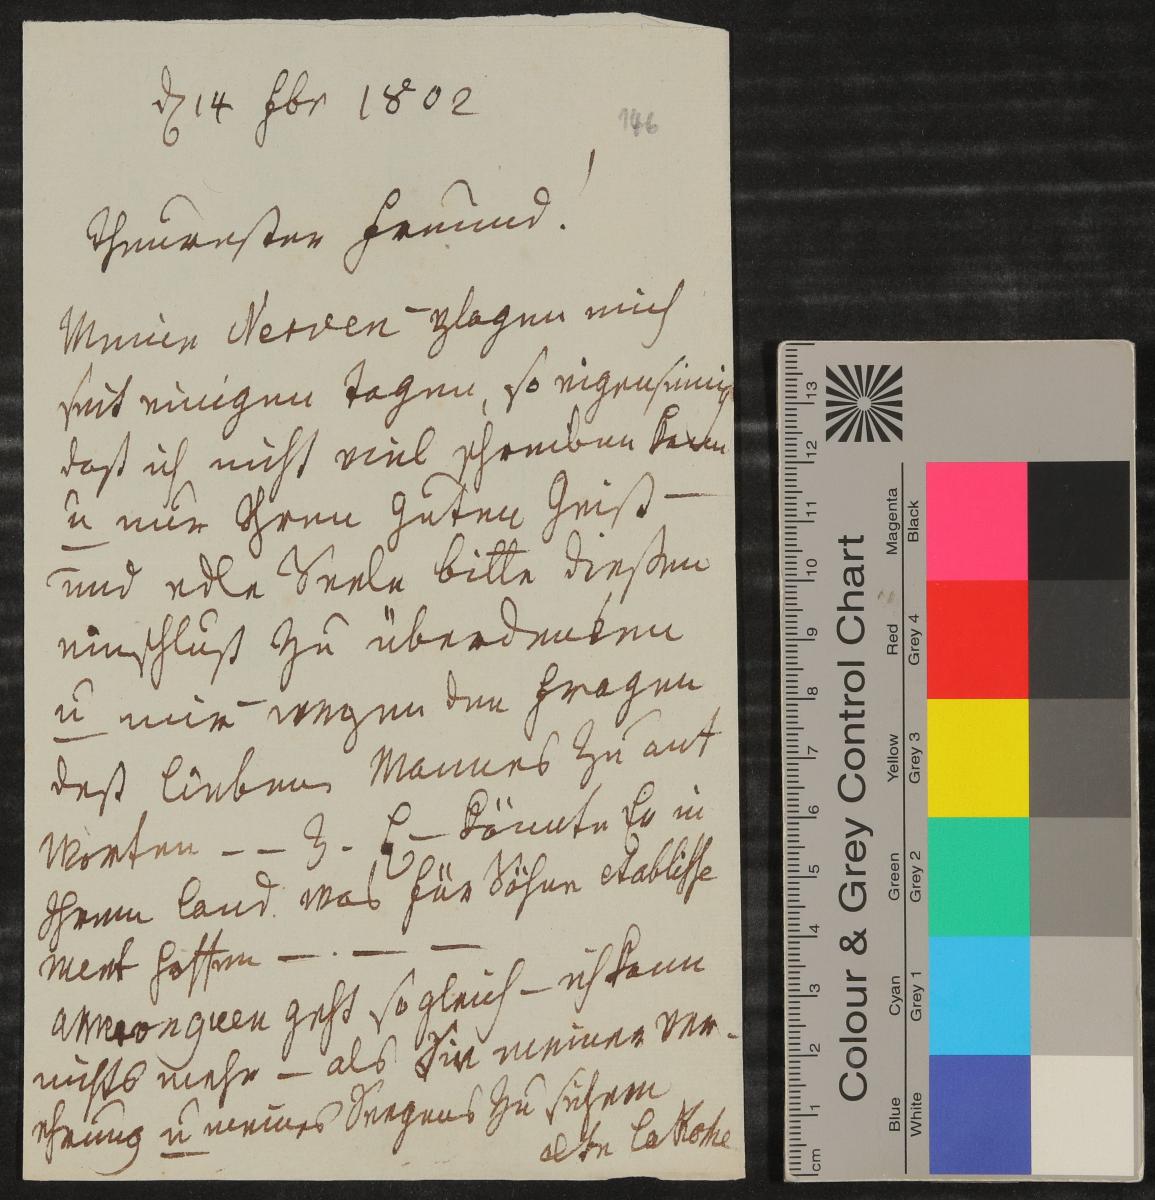 d 14 Fbr 1802
146
Theurester Freund!
Meine Nerven – plagen mich
seit einigen Tagen, so eigensinnig
daß ich nicht viel schreiben kann
u nur Ihren Guten Geist –
und edle Seele bitte dießen
einschluß zu überdenken
u mir wegen den Fragen
deß lieben Mannes zu ant
worten – – Z. E – könnte Er in
Ihrem Land was für Söhne etablisse
ment hoffen – . – –
geht so gleich – ich kann
nichts mehr – als Sie meiner ver-
ehrung u meines Seegens zu sichern
alte La Roche
13
12
11
10
9
8
7
6
5
4
3
2
1
cm
Colour & Grey Control Chart
Magenta
Black
Red
Grey 4
Yellow
Grey 3
Green
Grey 2
Cyan
Grey 1
Blue
White